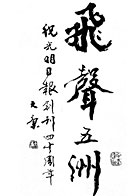 飛聲五洲
祝光明日報創刊四十周年